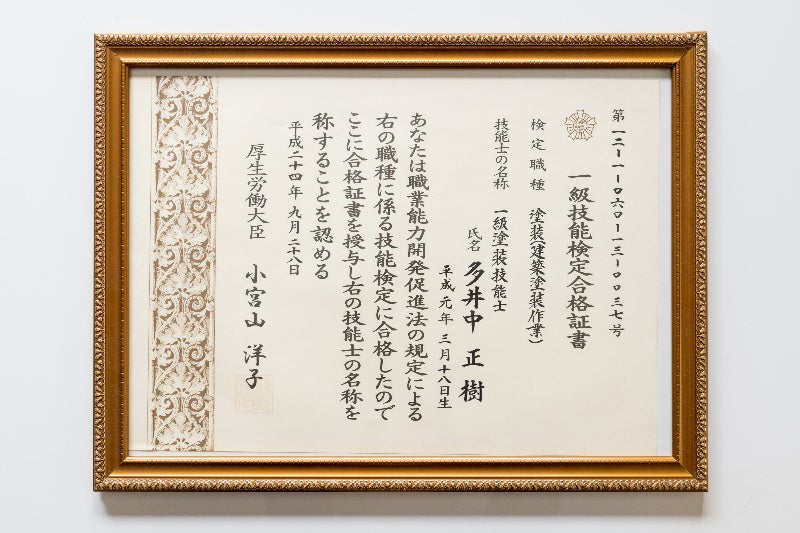 第一二ー一ー〇六〇ー一三ー〇〇三七号
一級技能検定合格証書
検定職種 塗装(建築塗装作業)
技能士の名称 一級塗装技能士
氏名 多井中 正樹
平成元年三月十八日生
あなたは職業能力開発促進法の規定による
右の職種に係る技能検定に合格したので
ここに合格証書を授与し右の技能士の名称を
称することを認める
平成二十四年九月二十八日
厚生労働大臣 小宮山 洋子